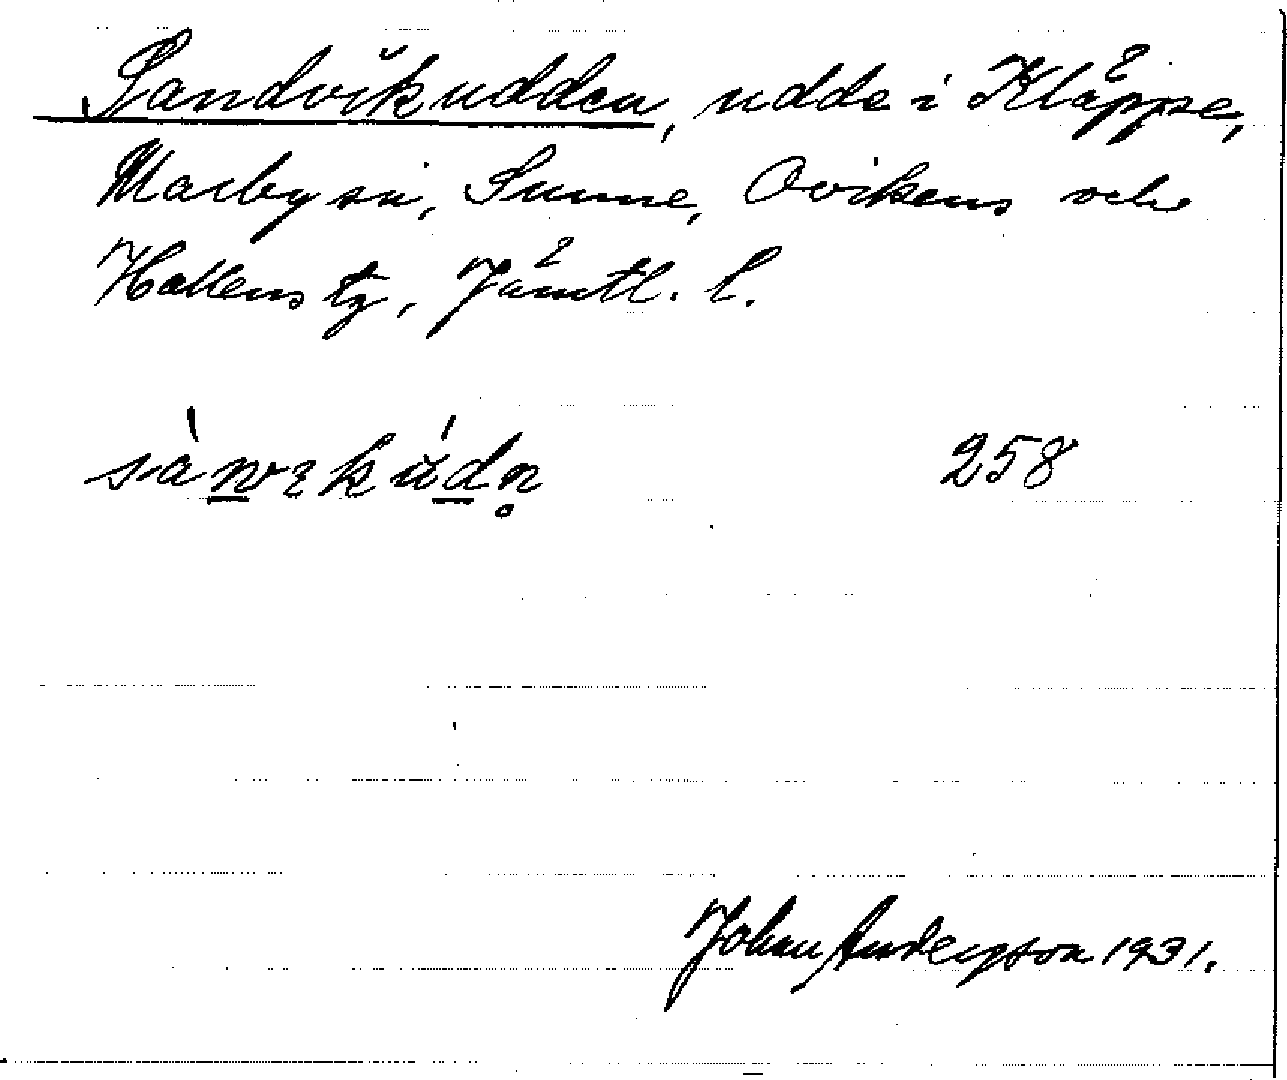 Sandvikudden, udde i Kläppe,
Marby sn, Sunne, Ovikens och
Hallens tg, Jämtl. l.
sànvıkúdn̥ 258
Johan Andersson 1931.